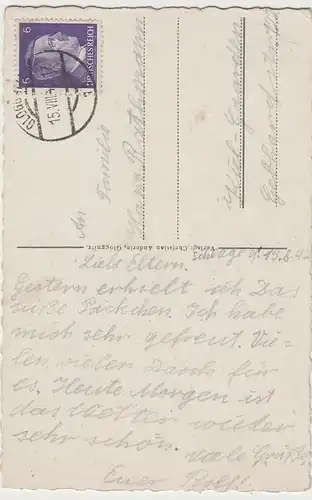 6 6
DEUTSCHES REICH
GLOGG
15.VIII.
An
Familie
Hans
Kiel-Gaarden
Verlag: Christian Anderle, Gloggnitz.
15.8.42
Liebe Eltern.
Gestern erhielt ich das
süße Päckchen. Ich habe
mich sehr gefreut. Vie-
len vielen Dank für
es. Heute Morgen ist
das Wetter wieder
sehr schön. Viele Grüße
Euer Rolf!